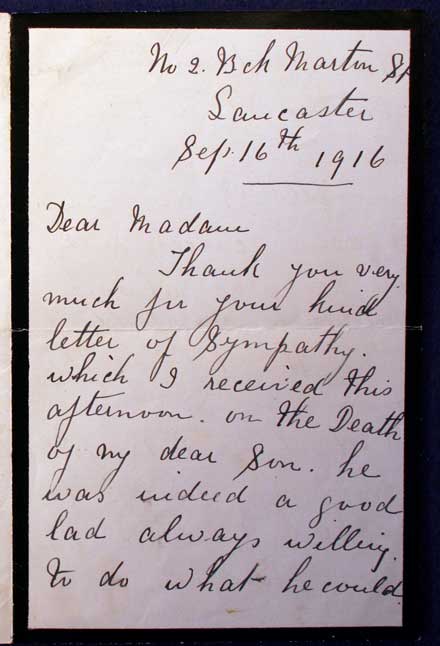 No 2. Bck Marton St
Lancaster
Sep. 16th 1916
Dear Madam
Thank you very
much for your kind
letter of Sympathy.
which I received this
afternoon. on the Death
of my dear Son. he
was indeed a good
lad always willing.
to do what he could.